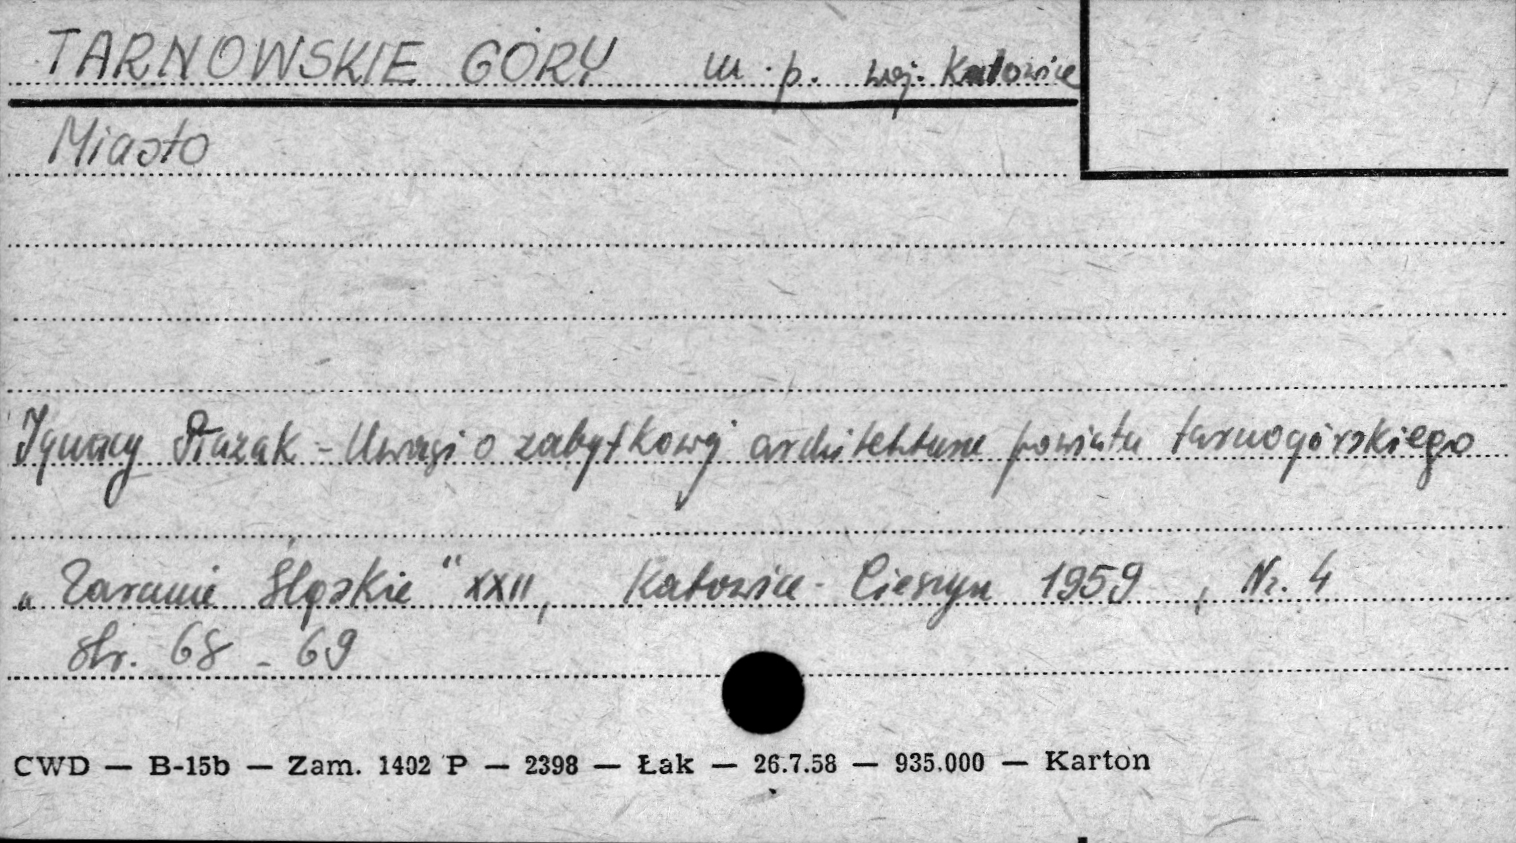 TARNOWSKIE GÓRY m. p. woj. Katowice
Miasto
Ignacy Płazak - Uwagi o zabytkowej architekturze powiatu tarnogórskiego
„Zaranie Śląskie" XXII, Katowice - Cieszyn 1959, Nr. 4
str. 68 - 69
CWD — B-15b — Zam. 1402 P — 2398 — Łak — 26.7.58 — 935.000 — Karton